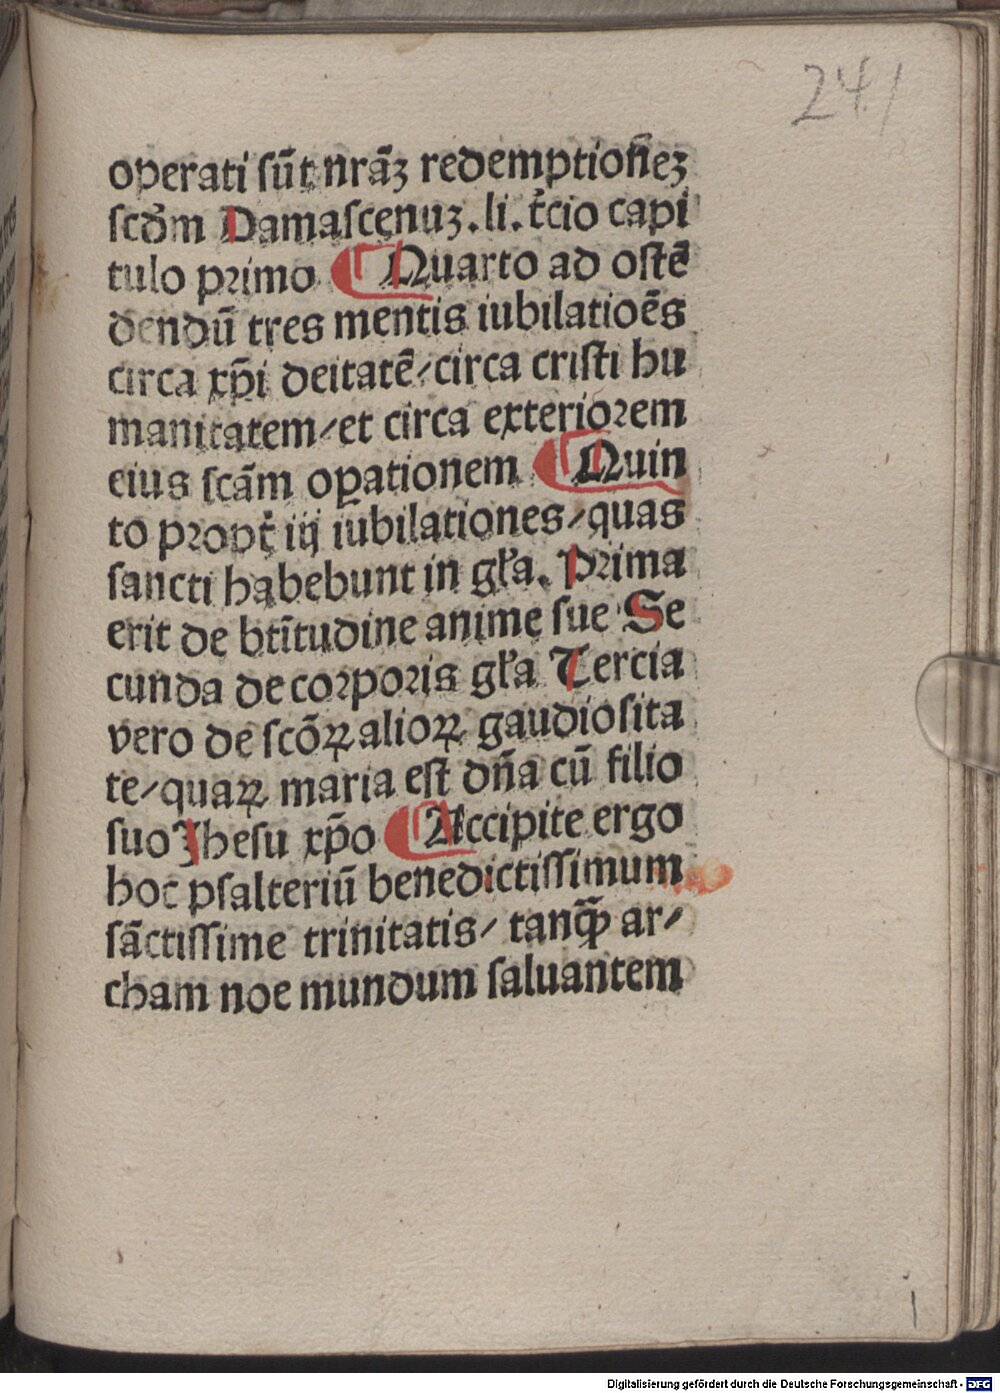 241
operati sūt nrāꝫ redemptionēꝫ
scďm Damascenuꝫ. li. t̄cio capi
tulo primo Quarto ad ostē
dendū tres mentis iubilatioēs
circa xp̄i deitatē/circa cristi hu
manitatem/et circa exteriorem
eius scām oꝑationem Quin
to propt̄ iij iubilationes/quas
sancti habebunt in gła. Prima
erit de btītudine anime sue Se
cunda de corporis gła Tercia
vero de scōꝝ alioꝝ gaudiosita
te/quaꝝ maria est dn̄a cū filio
suo Jhesu xp̄o Accipite ergo
hoc psalteriū benedictissimum
sāctissime trinitatis/ tanqꝫ̄ ar/
cham noe mundum saluantem
Digitalisierung gefördert durch die Deutsche Forschungsgemeinschaft - DFG